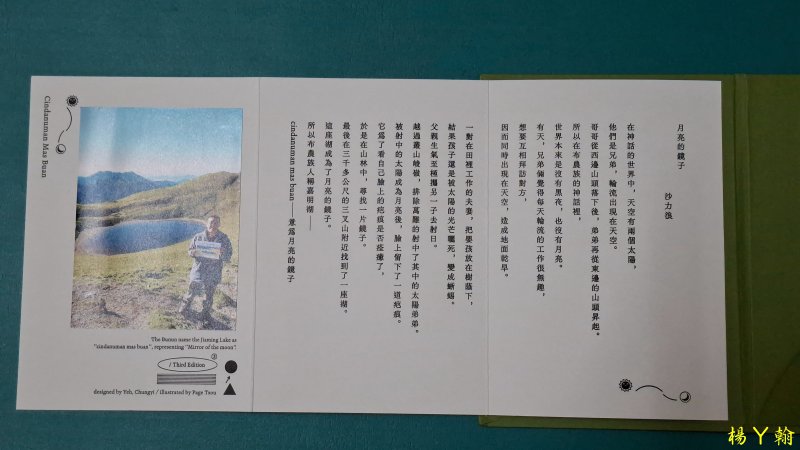 月亮的鏡子
沙力浪
在神話的世界中，天空有兩個太陽，
他們是兄弟，輪流出現在天空。
哥哥從西邊山頭落下後，弟弟再從東邊的山頭昇起。
所以在布農族的神話裡，
世界本來是沒有黑夜，也沒有月亮。
有天，兄弟倆覺得每天輪流的工作很無趣，
想要互相拜訪對方，
因而同時出現在天空，造成地面乾旱。
一對在田裡工作的夫妻，把嬰孩放在樹蔭下，
結果孩子還是被太陽的光芒曬死，變成蜥蜴。
父親生氣至極攜另一子去射日。
越過叢山峻嶺，排除萬難的射中了其中的太陽弟弟。
被射中的太陽成為月亮後，臉上留下了一道疤痕。
它為了看自己臉上的疤痕是否痊癒了，
於是在山林中，尋找一片鏡子。
最後在三千多公尺的三叉山附近找到了一座湖。
這座湖成為了月亮的鏡子。
所以布農族人稱嘉明湖——
cindanuman mas buan——意為月亮的鏡子
Cindanuman Mas Buan
The Bunun name the Jiaming Lake as
"cindanuman mas buan", representing "Mirror of the moon".
/ Third Edition
designed by Yeh, Chungyi / illustrated by Page Tsou
楊丫翰